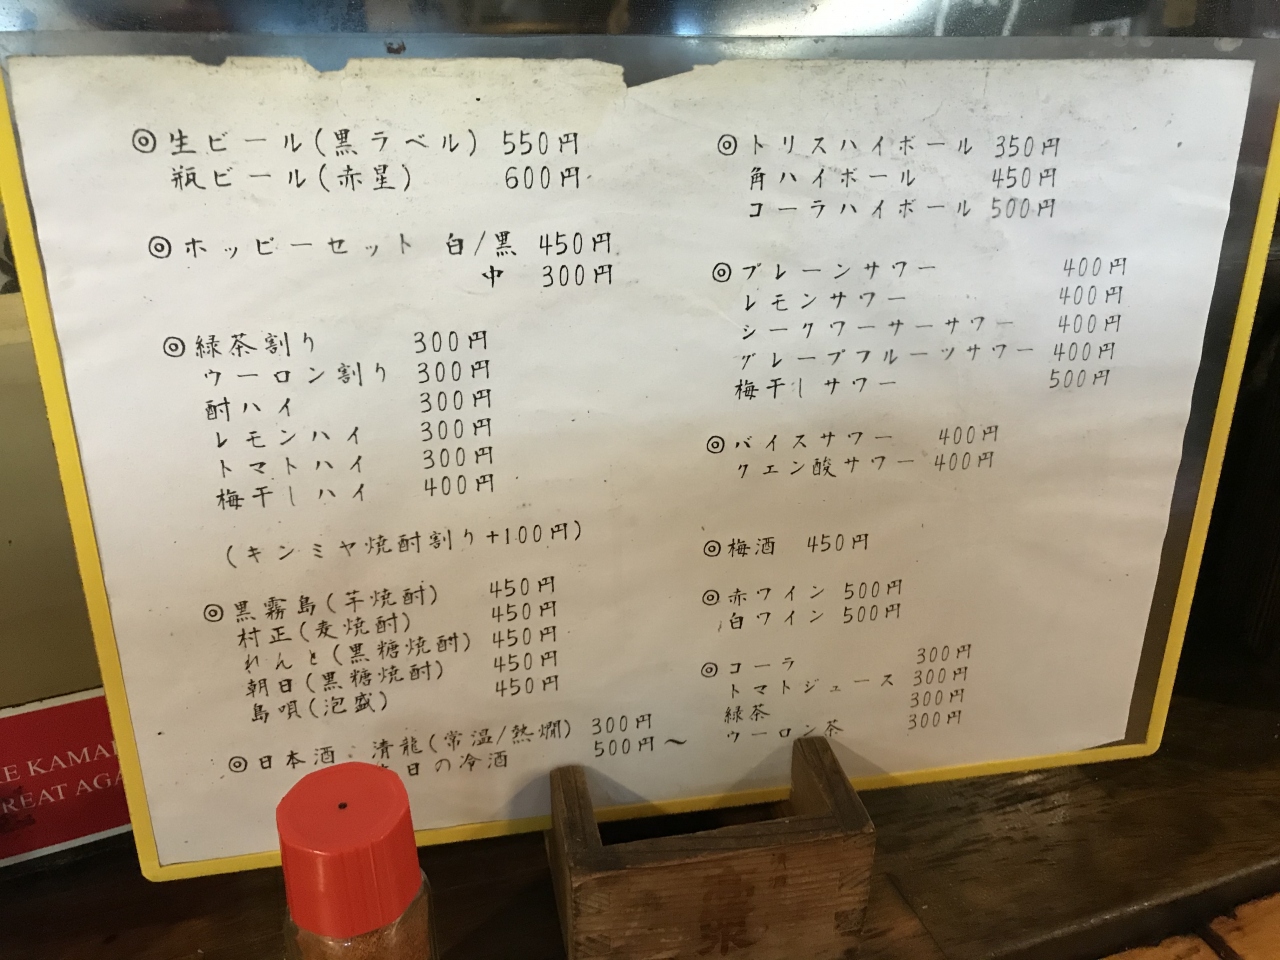 ◎生ビール(黒ラベル) 550円
瓶ビール(赤星) 600円
◎ホッピーセット 白/黒 450円
中 300円
◎緑茶割り 300円
ウーロン割り 300円
酎ハイ 300円
レモンハイ 300円
トマトハイ 300円
梅干しハイ 400円
(キンミヤ焼酎割り+100円)
◎黒霧島(芋焼酎) 450円
村正(麦焼酎) 450円
れんと(黒糖焼酎) 450円
朝日(黒糖焼酎) 450円
島唄(泡盛) 450円
◎日本酒:清龍(常温/熱燗) 300円
日の冷酒 500円〜
◎トリスハイボール 350円
角ハイボール 450円
コーラハイボール 500円
◎プレーンサワー 400円
レモンサワー 400円
シークワーサーサワー 400円
グレープフルーツサワー 400円
梅干しサワー 500円
◎バイスサワー 400円
クエン酸サワー 400円
◎梅酒 450円
◎赤ワイン 500円
白ワイン 500円
◎コーラ 300円
トマトジュース 300円
緑茶 300円
ウーロン茶 300円